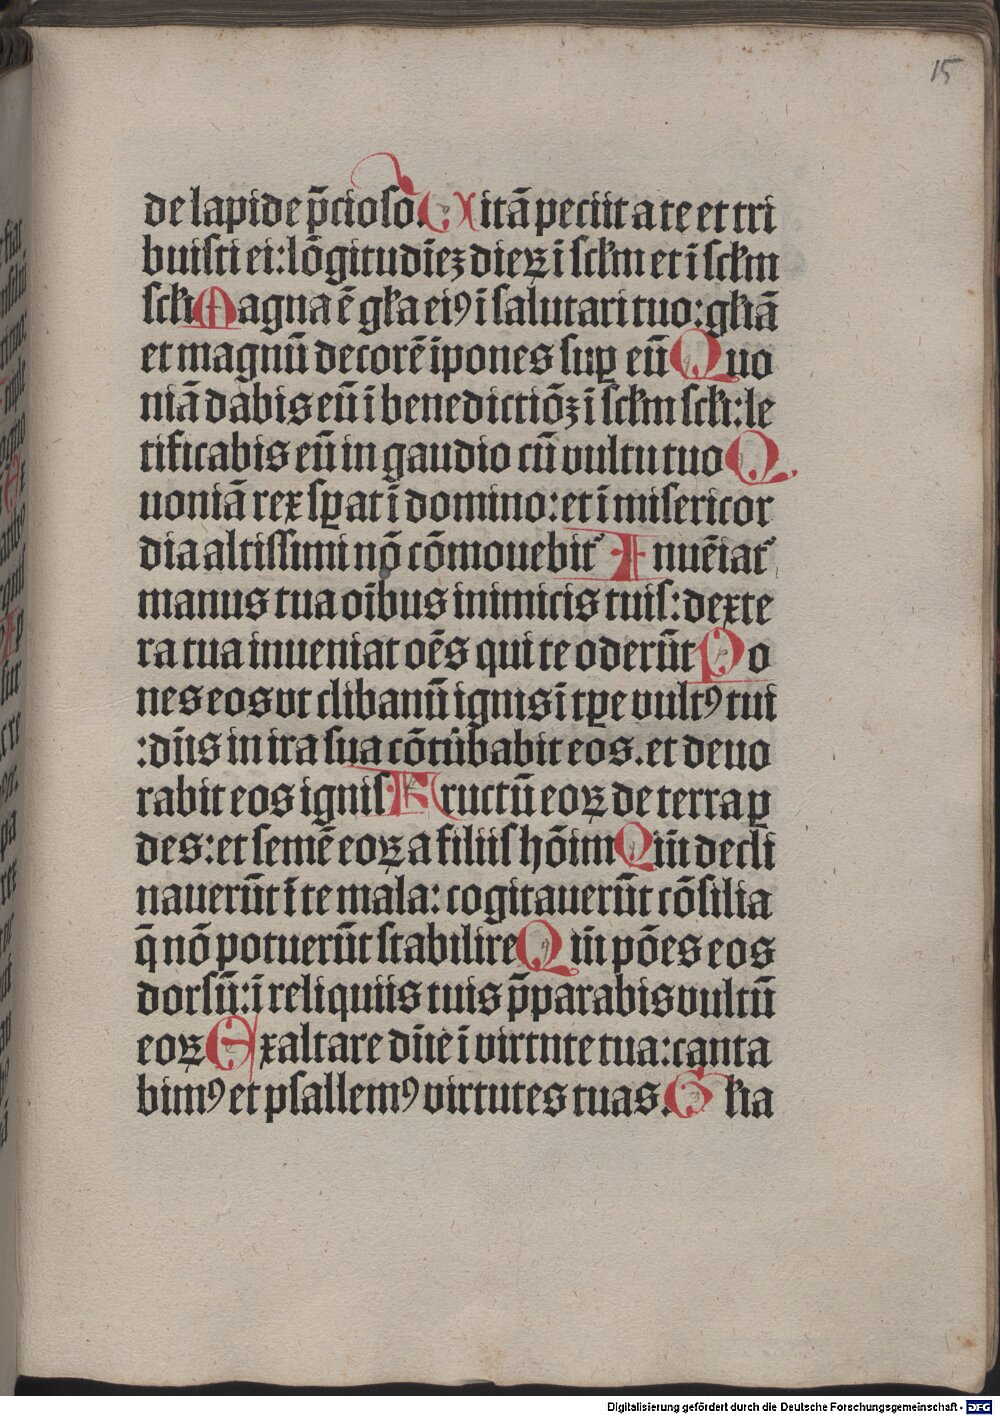 15
de lapide p̄cioso. Uitā peciit a te et tri
buisti ei: lōgitudīeꝫ dieꝝ ī sc̄lm et ī sc̄lm
sc̄li Magna ē gl̄a eiꝰ ī salutari tuo: gl̄iā
et magnū decorē īpones suꝑ eū Quo
niā dabis eū ī benedictiōꝫ ī sc̄lm sc̄li: le
tificabis eū in gaudio cū vultu tuo Q
uoniā rex sꝑat ī domino: et ī misericor
dia altissimi nō cōmouebit᷑ Inuēiat᷑
manus tua oībus inimicis tuis: dexte
ra tua inueniat oēs qui te oderūt Po
nes eos vt clibanū ignis ī tꝑe vultꝰ tui
: dn̄s in ira sua cōtūbabit eos. et deuo
rabit eos ignis Fructū eoꝝ de terra ꝑ
des: et semē eoꝝ a filiis hōim Qm̄ decli
nauerūt ī te mala: cogitauerūt cōsilia
q̄ nō potuerūt stabilire Qm̄ pōes eos
dorsū: ī reliquiis tuis p̄parabis vultū
eoꝝ Exaltare dn̄e ī virtute tua: canta
bimꝰ et psallemꝰ virtutes tuas. Gl̄ia
Digitalisierung gefördert durch die Deutsche Forschungsgemeinschaft - DFG